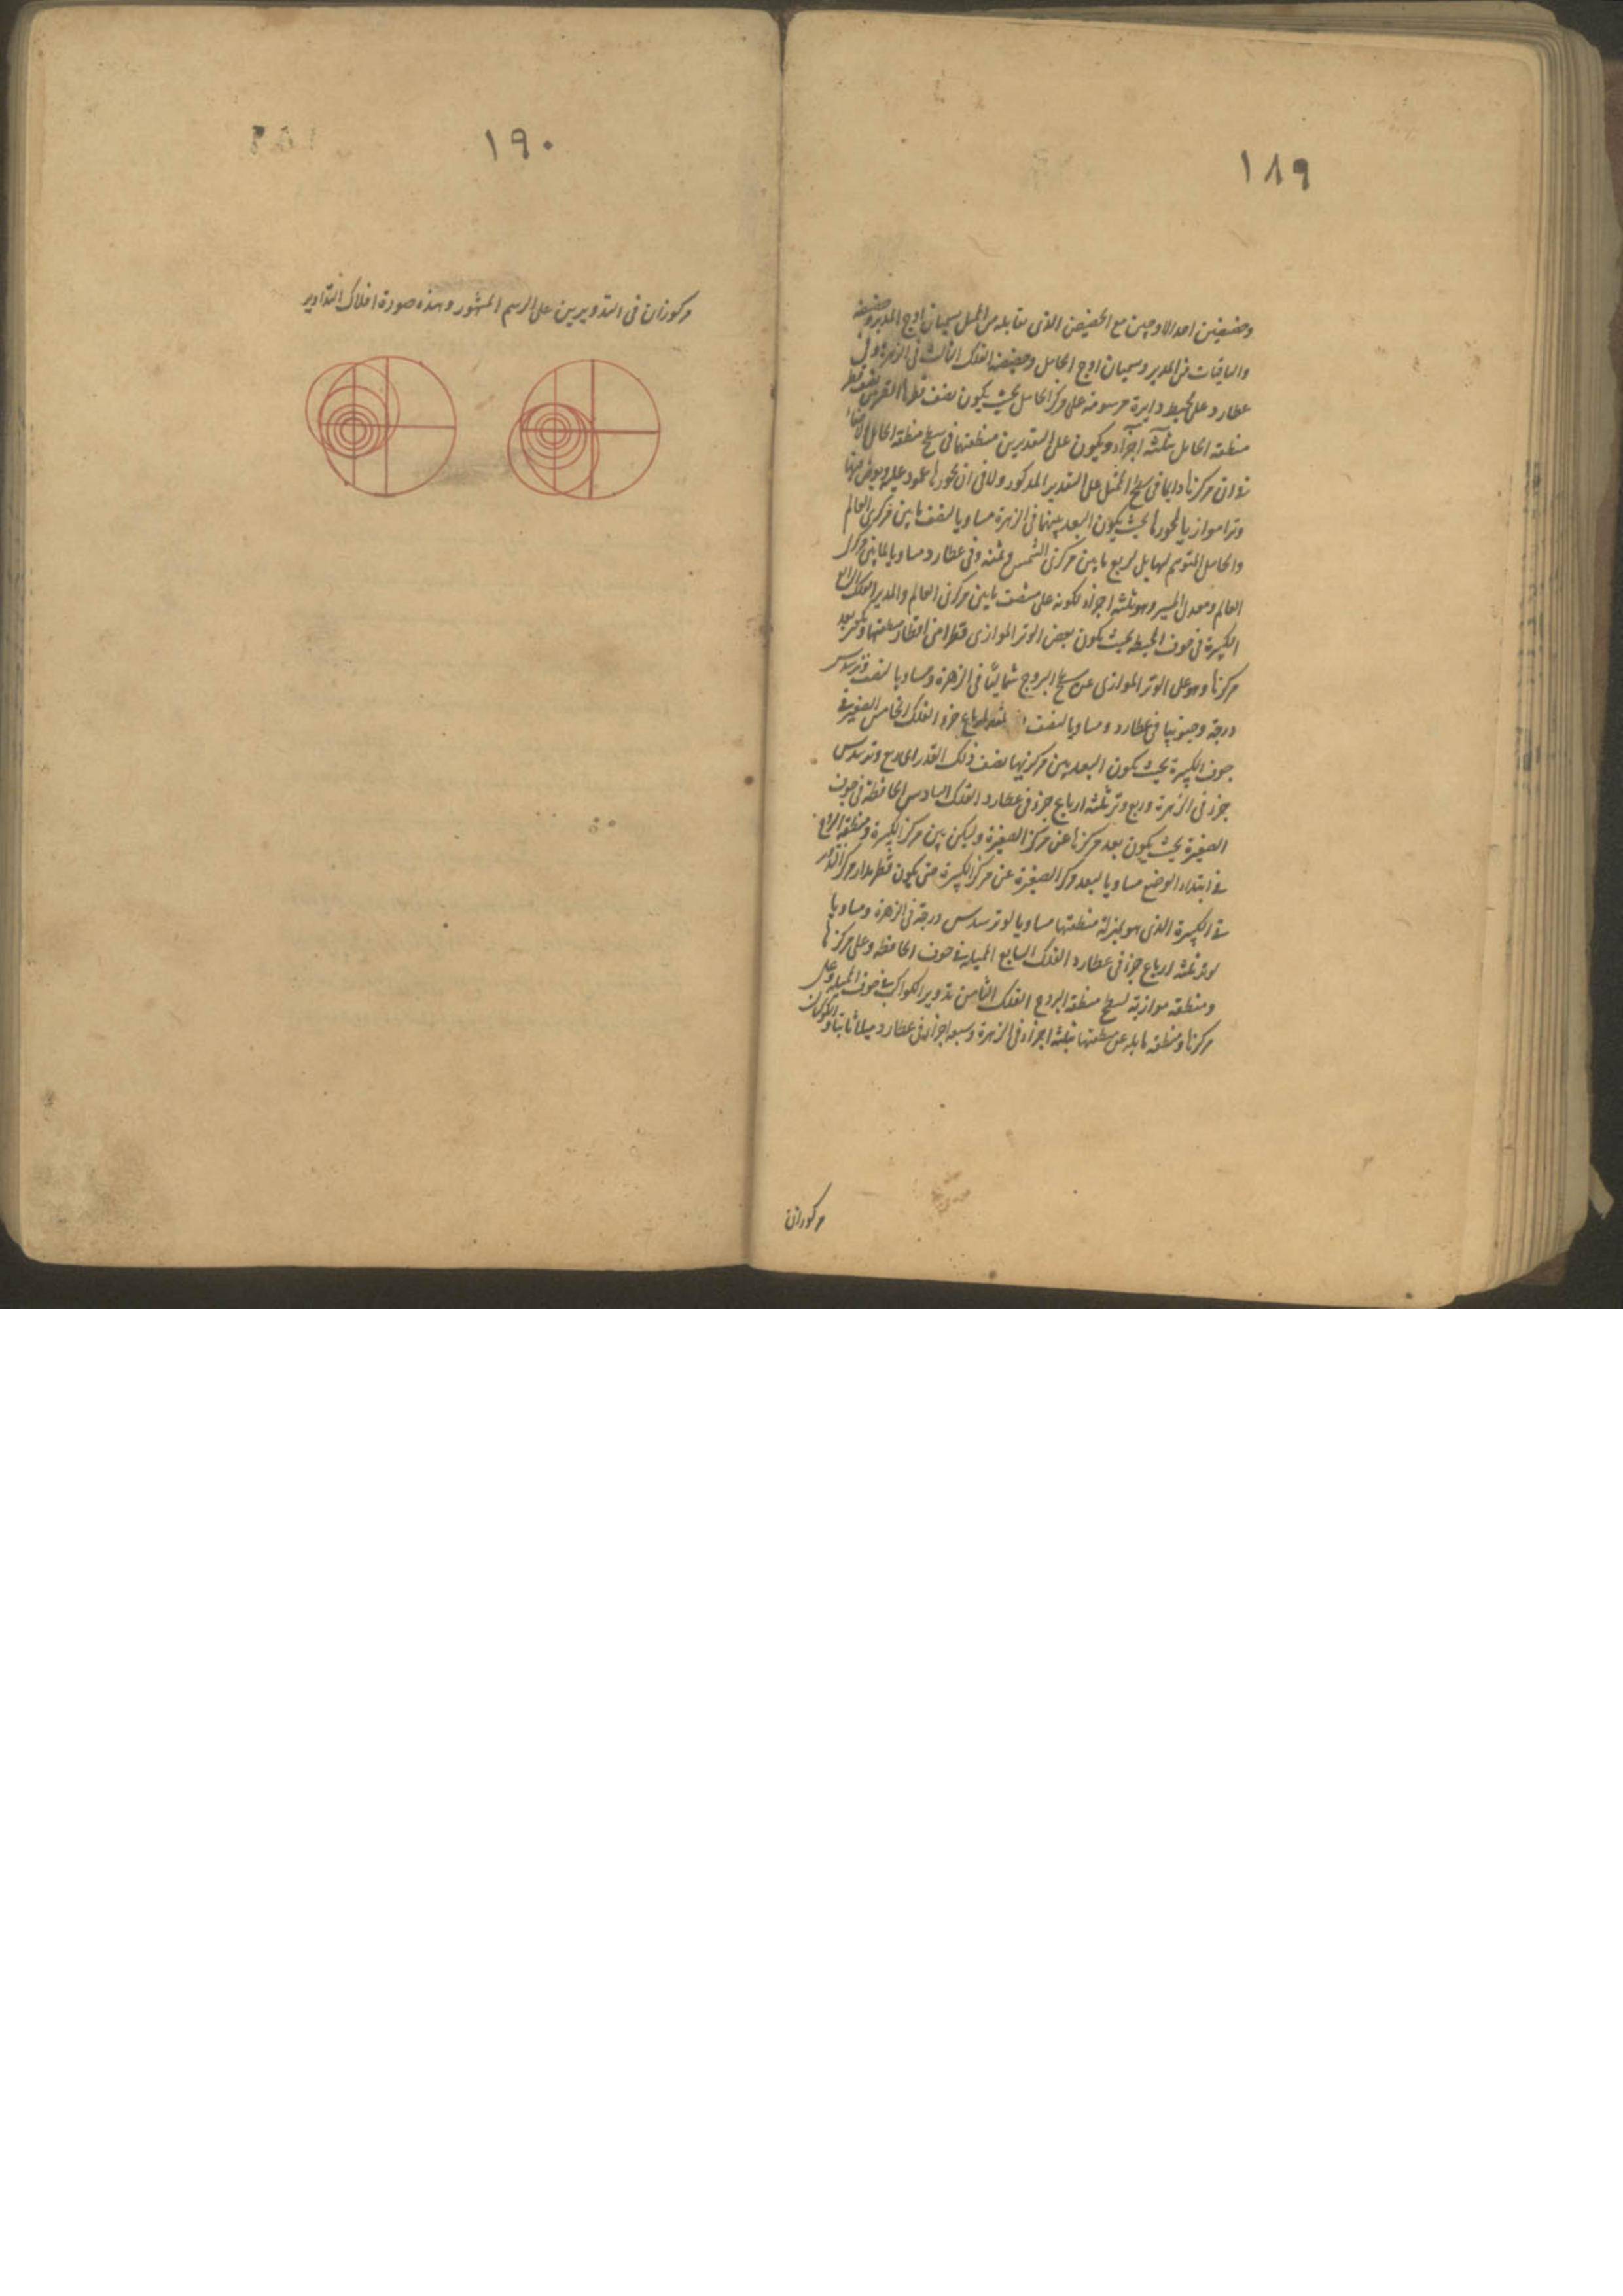 ١٨٩
وحضيضين احد الاوجين مع الحضيض الذى يقابله من الممثل يسميان اوج المدير وحضيضه
والباقيان من المدير ويسميان اوج الحامل وحضيضه الفلك الثالث فى الزهرة وفى
عطارد على محيط دايرة مرسومة على مركز الحامل بحيث يكون نصف قطرها نصف قطر
منطقة الحامل بثلثة اجزاء ويكون على التقديرين منطقتها فى سطح منطقة الحامل
فى ان مركزها دايما فى سطح الممثل على التقدير المذكور ولا فى ان محورها عمود عليه ويفرض فيها
وترا موازيا لمحورها بحيث يكون البعد بينهما فى الزهرة مساويا لنصف ما بين مركزى العالم
والحامل المتوهم لها بل لربع ما بين مركزى الشمس وثمنه وفى عطارد مساويا لما بين مركزى
العالم ومعدل المسير وهو ثلثة اجزاء لكونه على منصف ما بين مركزى العالم والمدير الفلك الرابع
الكبيرة فى جوف المحيطة بحيث يكون بعض الوتر الموازى قطرا من اقطار منطقتها ويكون بعد
مركزها وهو على الوتر الموازى عن سطح البروج شماليا فى الزهرة ومساويا لنصف وتر سدس
درجة وجنوبيا فى عطارد ومساويا لنصف ثلثة ارباع جزء الفلك الخامس الصغيرة فى
جوف الكبيرة بحيث يكون البعد بين مركزيهما نصف ذلك القدر اى ربع وتر سدس
جزء فى الزهرة وربع وتر ثلثة ارباع جزء فى عطارد الفلك السادس الحافظة فى جوف
الصغيرة بحيث يكون بعد مركزها عن مركز الصغيرة وليكن بين مركز الكبيرة ومنطقة البروج
فى ابتداء الوضع مساويا لبعد مركز الصغيرة عن مركز الكبيرة حتى يكون قطر مدار مركز التدوير
فى الكبيرة الذى هو بمنزلة منطقتها مساويا لوتر سدس درجة فى الزهرة ومساويا
لوتر ثلثة ارباع جزء فى عطارد الفلك السابع المميلة فى جوف الحافظة وعلى مركزها
ومنطقته موازية لسطح منطقة البروج الفلك الثامن تدوير الكواكب فى جوف المميلة وعلى
مركزها ومنطقته مايلة عن منطقتها بثلثة اجزاء فى الزهرة وسبعة اجزاء فى عطارد ميلا ثابتا والكوكبان
مركوزان
١٩٠
مركوزان فى التدويرين على الرسم المشهور وهذه صورة افلاك التداوير